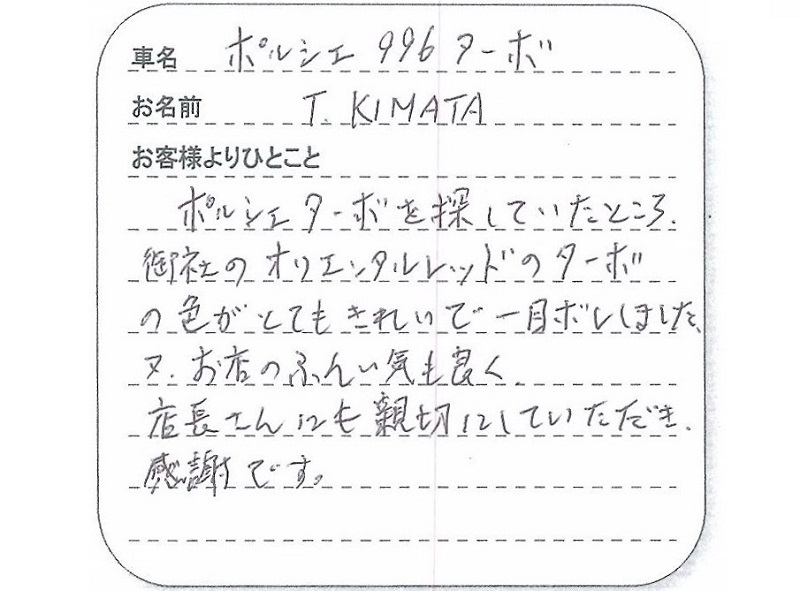 車名 ポルシェ 996 ターボ
お名前 T. KIMATA
お客様よりひとこと
ポルシェターボを探していたところ、
御社のオリエンタルレッドのターボ
の色がとてもきれいで一目ボレしました。
又、お店のふんい気も良く、
店長さんにも親切にしていただき、
感謝です。